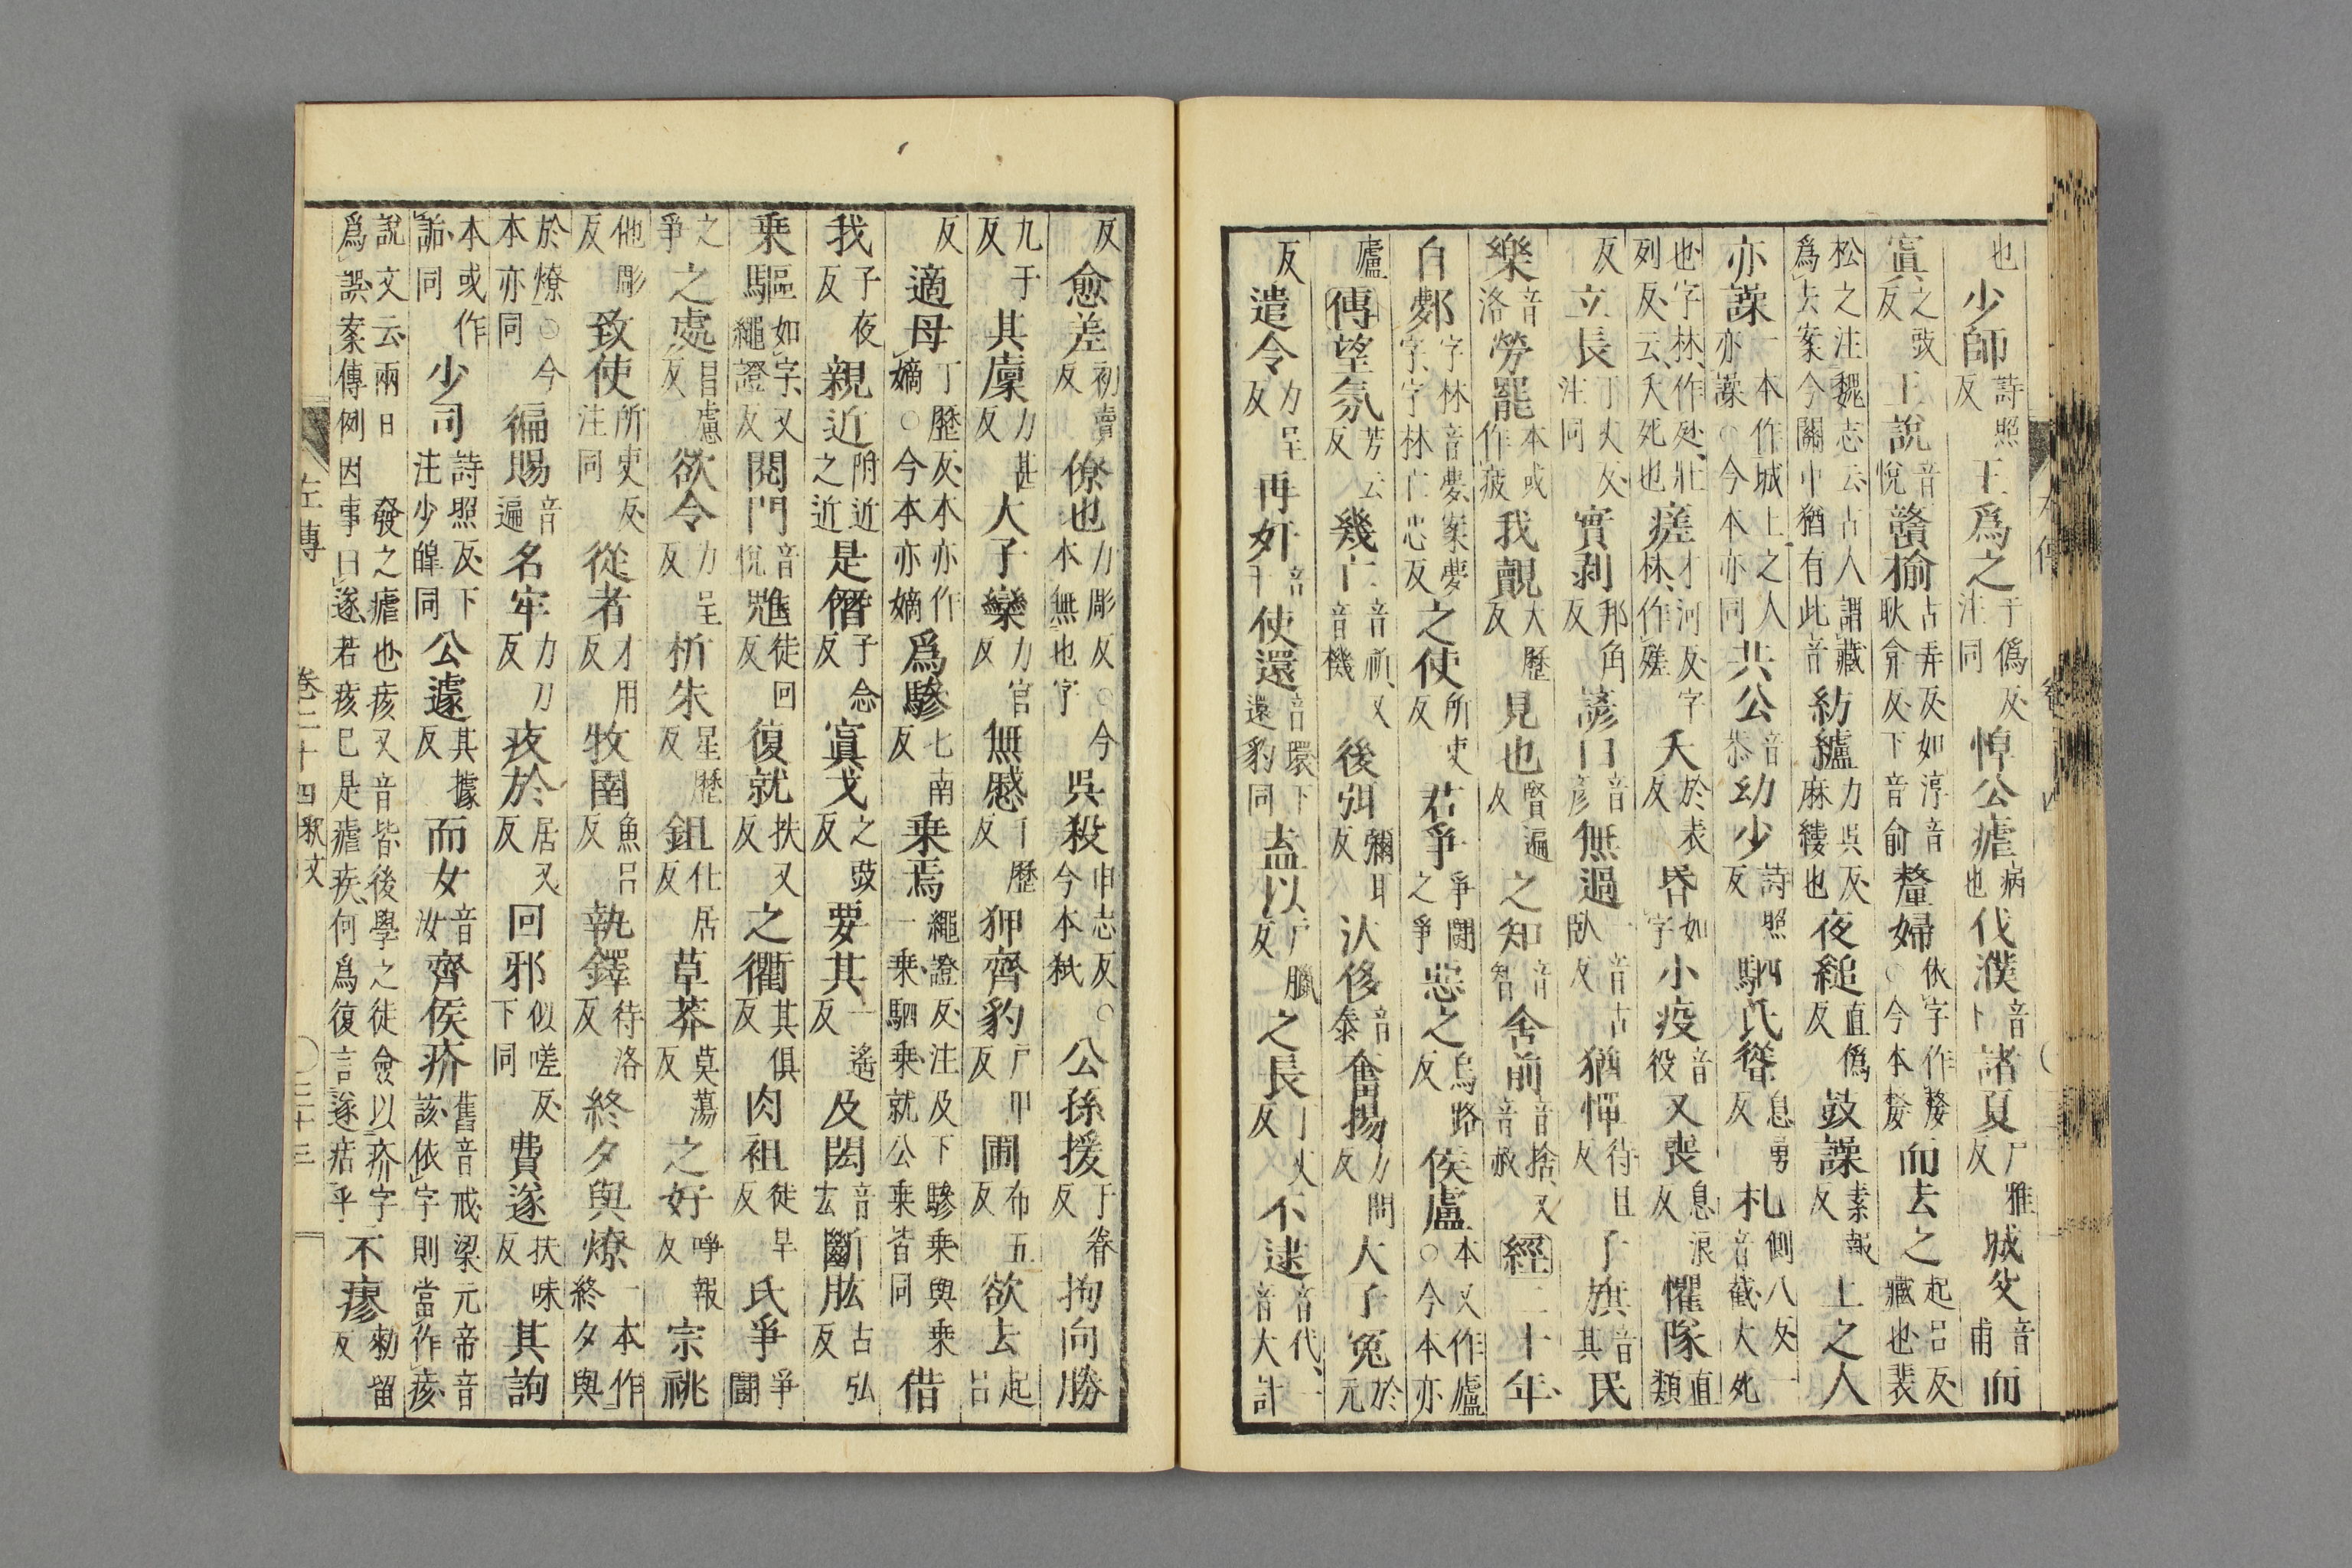 也少師詩照反王爲之于僞反注同悼公瘧病也伐濮音卜諸夏戶雅反城父音甫而
寘之豉反王說音悅蠻揄占弄反如淳音耿弇反下音俞釐婦依字作嫠○今本嫠而去之起呂反藏也裴
松之注魏志云古人謂藏爲去案今關中猶有此音紡纑力吳反麻縷也夜縋直僞反鼓譟素報反上之人
亦譟一本作城上之人亦譟○今本亦同共公音恭幼少詩照反駟氏聳息勇反札側八反一音截大死
也字林作𣧑壯列反云夭死也瘥才河反字林作𤻞夭於表反昏如字小疫音役又喪息浪反懼隊直類
反立長丁丈反注同實剥邦角反諺口音彦無過一音古臥反猶憚待旦反子旗音其民
樂音洛勞罷本或作疲我覿大歷反見也賢遍反之知音智舍前音捨又音赦經二十年
自鄸字林音夢案夢字字林亡忠反之使所吏反君爭爭鬪之爭惡之烏路反侯廬本又作廬○今本亦
廬傳望氛芳云反幾亡音祈又音機後弭彌耳反汏侈音泰奮揚方問反大子冤於元
反遣令力呈反再奸音干使還音環下還豹同盍以戶臘反之長丁丈反不逮音代一音大計
反愈差初賣反僚也力彫反○今本無也字吳殺申志反○今本弑公孫援于眷反拘向勝
九于反其廩力甚反大子欒力官反無慼千歷反狎齊豹戶甲反圃布五反欲去起呂
反適母丁歷反本亦作嫡○今本亦嫡爲驂七南反乘焉繩證反注及下驂乘與乘一乘駟乘就公乘皆同借
我子夜反親近附近之近是僭子念反寘戈之豉反要其一遙反及閎音宏斷肱古弘反
乘驅如字又繩證反閱門音悅魋徒回反復就扶又反之衢其俱反肉袒徒旱反氏爭爭鬪
之爭之處昌慮反欲令力呈反析朱星歷反鉏仕居反草莽莫蕩反之好呼報反宗祧
他彫反致使所吏反注同從者才用反牧圉魚呂反執鐸待洛反終夕與燎一本作終夕與
於燎○今本亦同徧賜音遍名牢力刀反疚於居又反回邪似嗟反下同費遂扶味反其詢
本或作訽同少司詩照反下注少皥同公遽其據反而女音汝齊侯疥舊音戒梁元帝音該依字則當作痎
說文云兩日一發之瘧也痎又音皆後學之徒僉以疥字爲誤案傳例因事曰遂若痎已是瘧疾何爲復言遂痁乎不瘳勑留反
左傳 卷二十四釋文 ○三十三